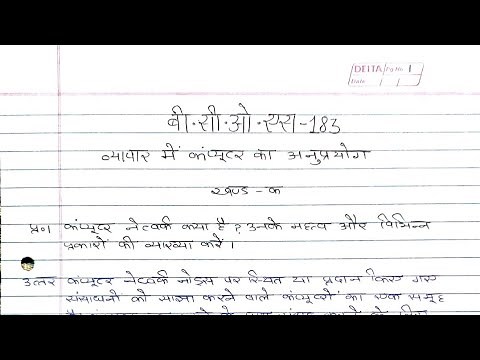 DELTA Pg No. 1
Date / /
बी.सी.ओ.एस-183
व्यापार में कंप्यूटर का अनुप्रयोग
खण्ड - क
प्र०1 कंप्यूटर नेटवर्क क्या है? उनके महत्व और विभिन्न
प्रकारों की व्याख्या करें।
उत्तर कंप्यूटर नेटवर्क नोड्स पर स्थित या प्रदान किए गए
संसाधनों को साझा करने वाले कंप्यूटरों का एक समूह